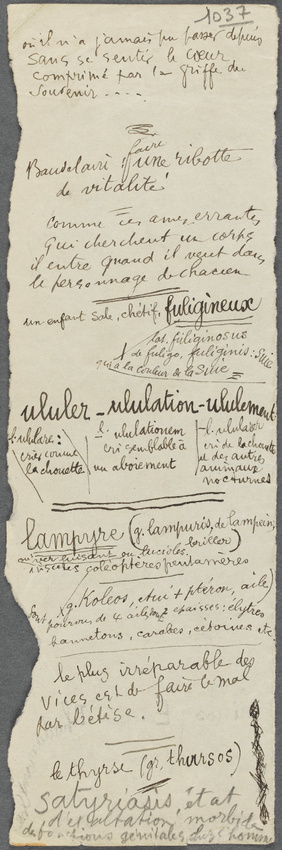 1037
où il n'a jamais pu passer depuis
sans se sentir le cœur
comprimé par la griffe du
souvenir ....
Baudelaire : faire
d'une ribotte
de vitalité
comme ces ames errantes
qui cherchent un corps
il entre quand il veut dans
le personnage de chacun
un enfant sale, chétif, fuligineux
lat. fuliginosus
de fuligo, fuliginis : suie
qui a la couleur de la suie
ululer - ululation - ululement
l. ululare :
crier comme
la chouette
l. ululationem
cri semblable à
un aboiement
l. ululare
cri de la chouette
et des autres
animaux
nocturnes
lampyre (g. lampuris, de lampein,
briller)
ou ver luisant ou lucioles
insectes coléoptères pentamères
(g. Koleos, étui + ptéron, aile)
sont pourvus de 4 ailes, 2 épaisses : élytres
hannetons, carabes, cétoines etc
le plus irréparable des
vices est de faire le mal
par bêtise.
le thyrse (gr. thursos)
satyriasis, état
d'exaltation morbide
des fonctions génitales chez l'homme